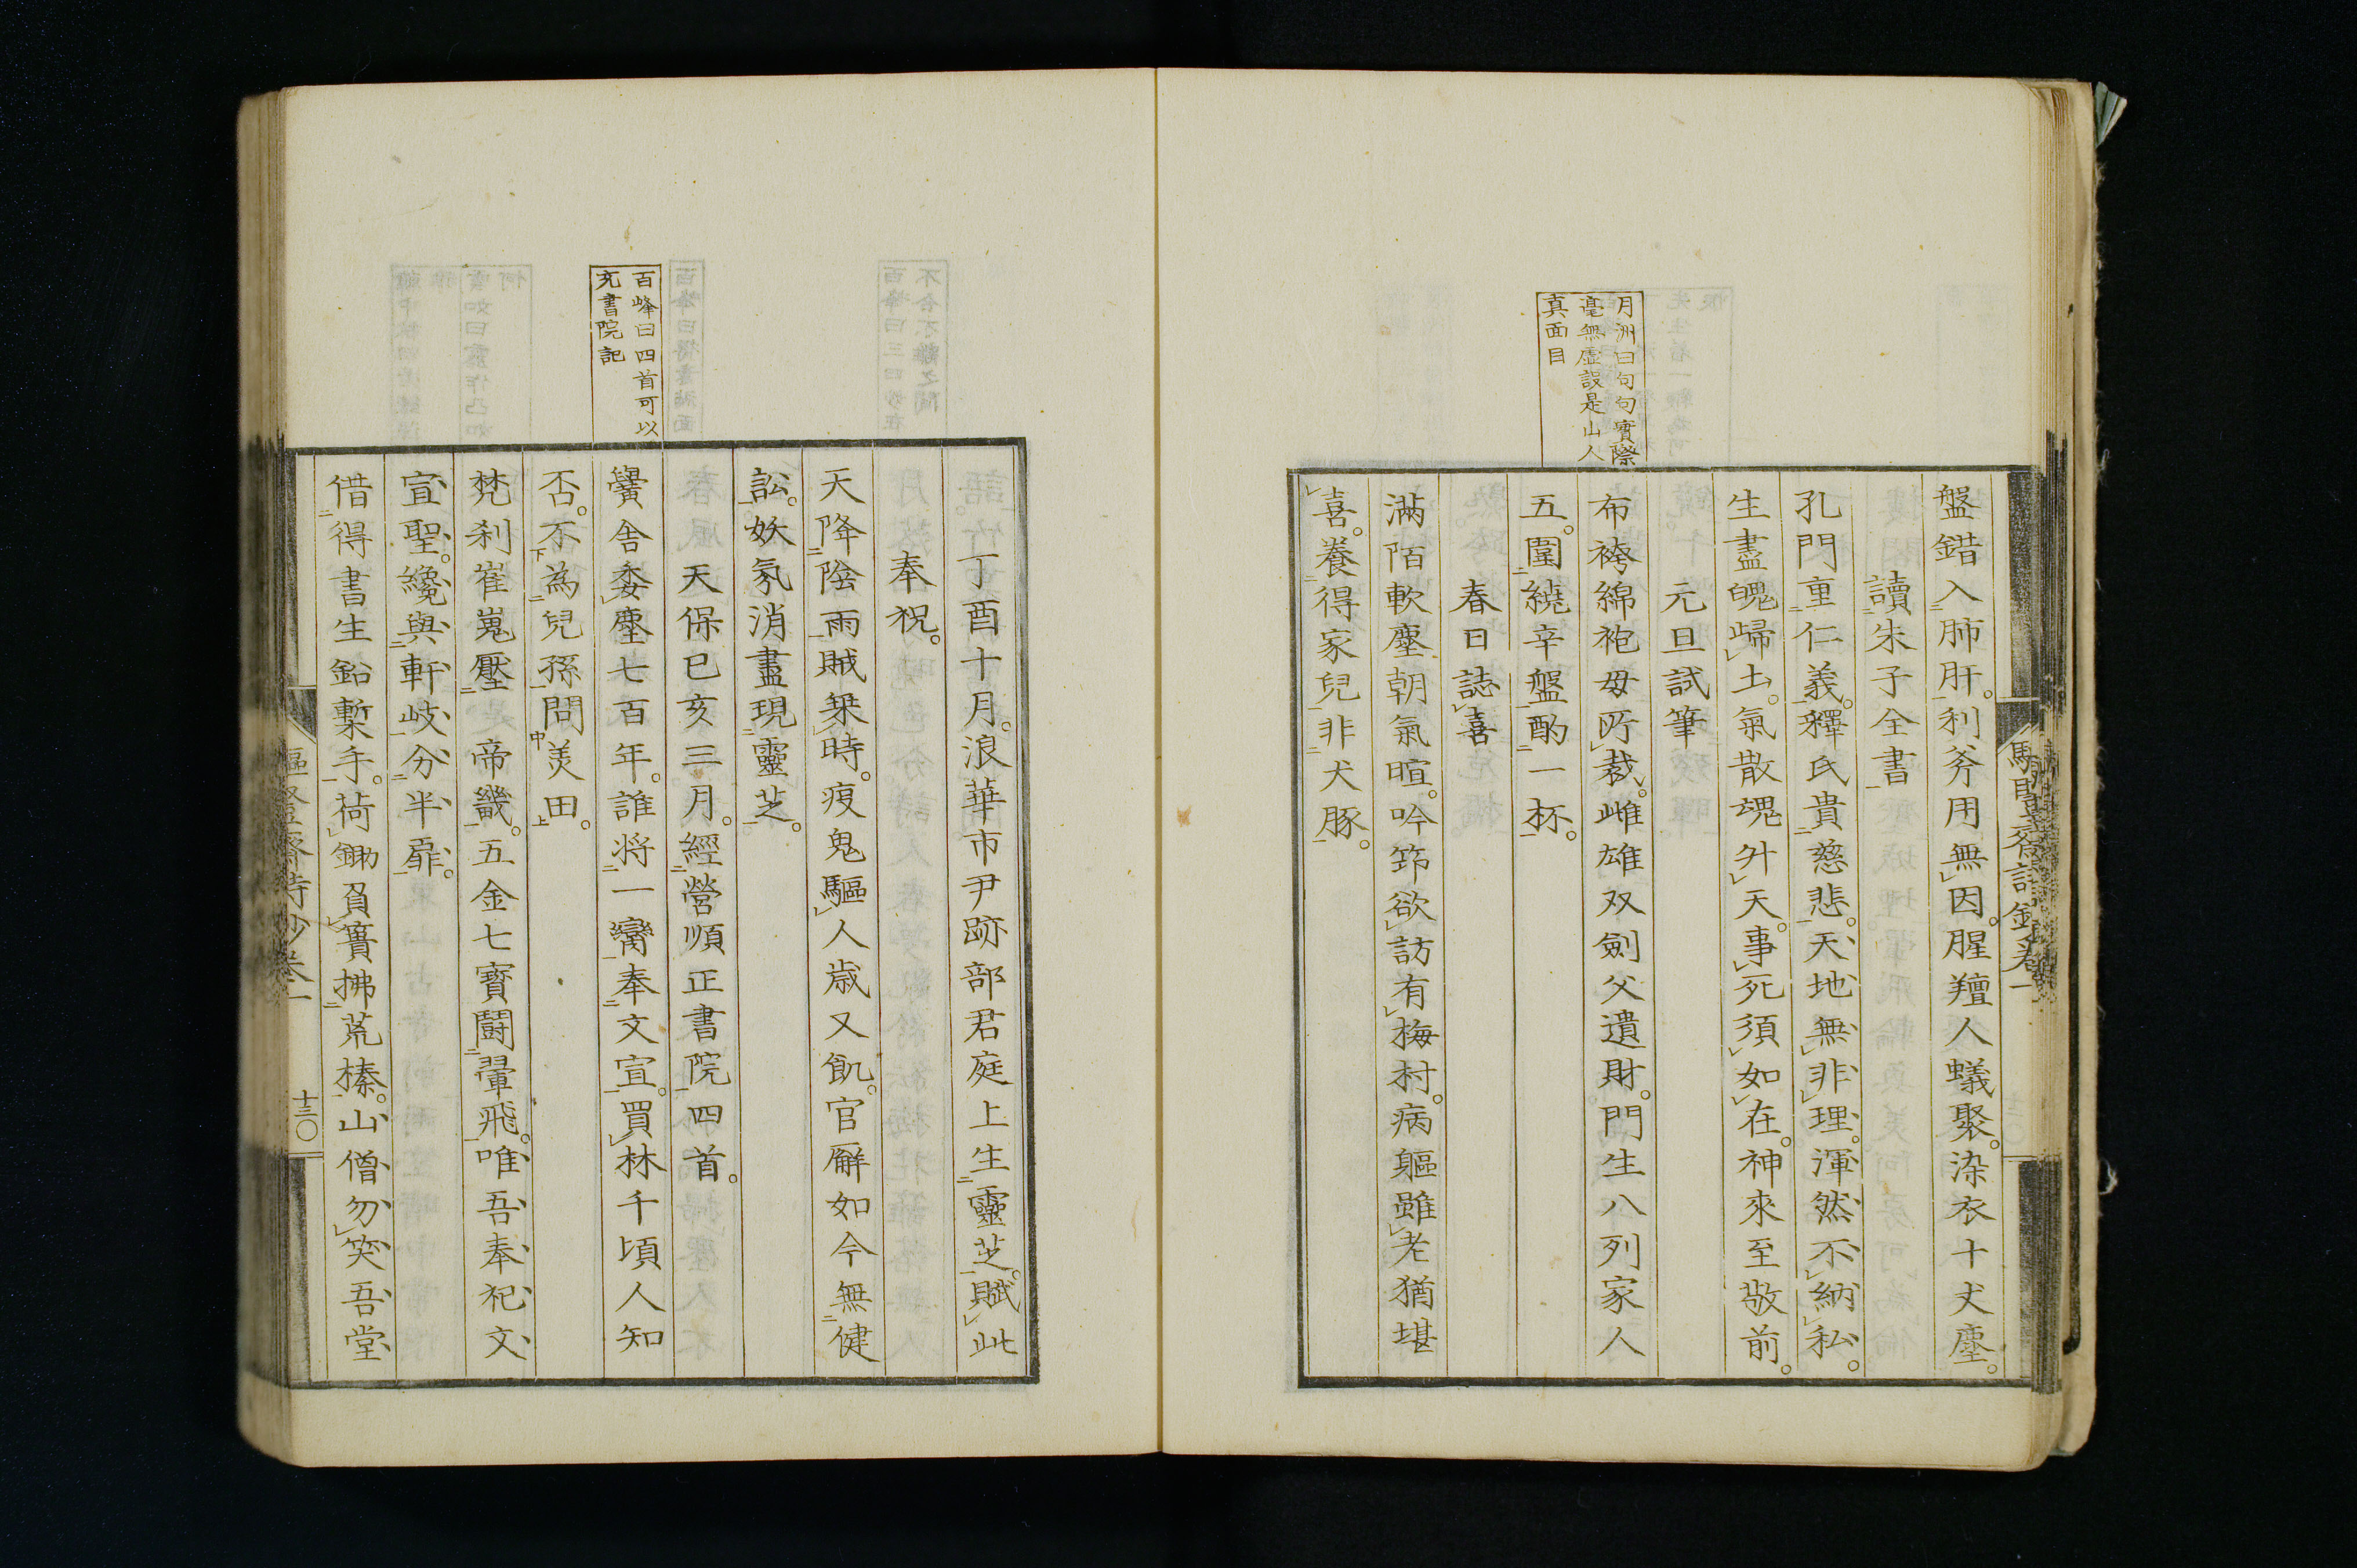 月洲曰句句實際
毫無虛設是山人
真面目
盤錯入肺肝。利斧用無因。腥羶人蟻聚。染衣十丈塵。
讀朱子全書
孔門重仁義。釋氏貴慈悲。天地無非理。渾然不納私。
生盡魄歸土。氣散魂升天。事死須如在。神來至敬前。
元旦試筆
布袴綿袍母所裁。雌雄双劍父遺財。門生八列家人
五。圍繞辛盤酌一杯。
春日誌喜
滿陌軟塵朝氣暄。吟筇欲訪有梅村。病軀雖老猶堪
喜。養得家兒非犬豚。
百峰曰四首可以
充書院記
丁酉十月。浪華市尹跡部君庭上生靈芝。賦此
奉祝。
天降陰雨賊乗時。疫鬼驅人歲又飢。官廨如今無健
訟。妖氛消盡現靈芝。
天保己亥三月。經營順正書院四首。
黌舍委塵七百年。誰將一臠奉文宣。買林千頃人知
否。不為兒孫問美田。
梵刹崔嵬壓帝畿。五金七寶鬪翬飛。唯吾奉祀文
宣聖。纔與軒岐分半扉。
借得書生鉛槧手。荷鋤負簣拂荒榛。山僧勿笑吾堂
驅豎齋詩鈔卷一
十三〇